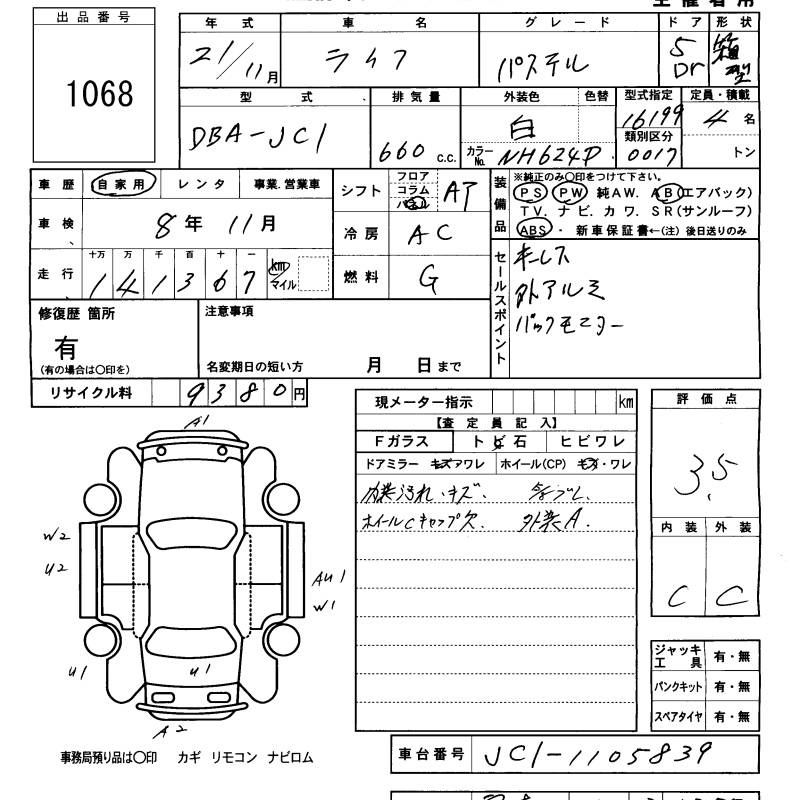 出品番号
1068
年式 車名 グレード ドア 形状
21/11月 ライフ パステル 5Dr 箱型
型式 排気量 外装色 色替 型式指定 定員・積載
DBA-JC1 660 c.c. 白 16199 4名
カラーNo. NH624P 類別区分 0017 トン
車歴 自家用 レンタ 事業.営業車
車検 8年 11月
走行 十万 万 千 百 十 一
141367 km マイル
シフト フロア コラム パネル AT
冷房 AC
燃料 G
装備品
※純正のみ○印をつけて下さい。
PS PW 純AW. AB(エアバック)
TV. ナビ. カワ. SR(サンルーフ)
ABS・ 新車保証書←(注) 後日送りのみ
セールスポイント
キーレス
社外アルミ
バックモニター
修復歴 箇所
有
(有の場合は○印を)
注意事項
名変期日の短い方 月 日まで
リサイクル料 9380円
現メーター指示 km
【査定員記入】
Fガラス トビ石 ヒビワレ
ドアミラー キズワレ ホイール(CP) キズ・ワレ
内装汚れ・キズ.
ホイールCキャップ欠. 外装A.
評価点
3.5
内装 外装
C C
A1
W2
U2
AU1
W1
U1
U1
A2
ジャッキ工具 有・無
パンクキット 有・無
スペアタイヤ 有・無
事務局預り品は○印 カギ リモコン ナビロム
車台番号 JC1-1105839